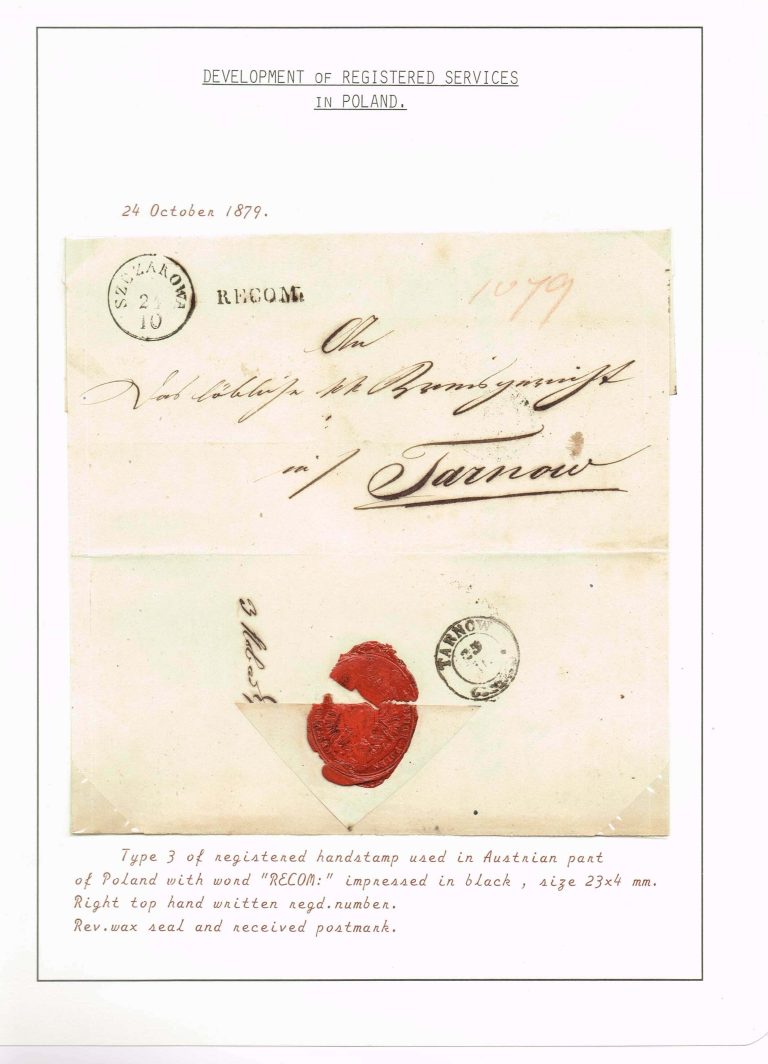 DEVELOPMENT OF REGISTERED SERVICES
IN POLAND.
24 October 1879.
SZCZAKOWA
24
10
RECOM:
1079
An
Das löbliche kk Kreisgericht
in Tarnow
TARNOW
25
Type 3 of registered handstamp used in Austrian part
of Poland with word "RECOM:" impressed in black , size 23x4 mm.
Right top hand written regd.number.
Rev.wax seal and received postmark.